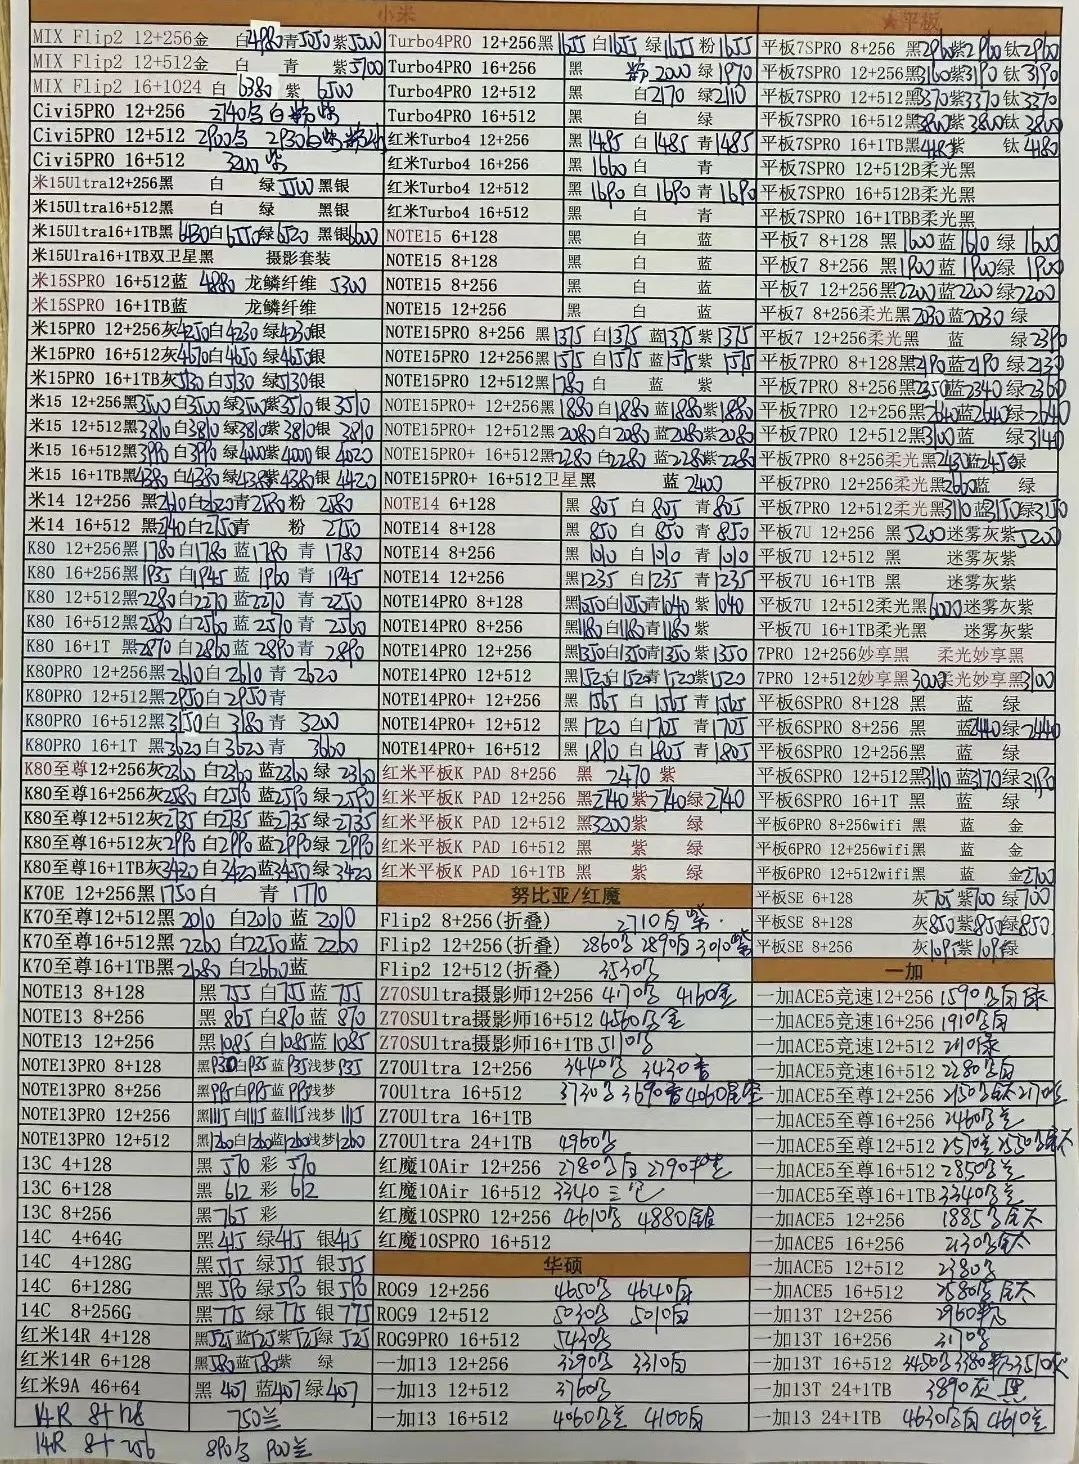 小米
MIX Flip2 12+256金 白4980青5050紫5000
MIX Flip2 12+512金 白 青 紫5700
MIX Flip2 16+1024 白 6380 紫 6500
Civi5PRO 12+256 2140 白粉紫
Civi5PRO 12+512
Civi5PRO 16+512 3200紫
米15Ultra12+256黑 白 绿5500黑银
米15Ultra16+512黑 白 绿 黑银
米15Ultra16+1TB黑6430白6550绿6520 黑银6600
米15Ulra16+1TB双卫星黑 摄影套装
米15SPRO 16+512蓝 4880 龙鳞纤维 5300
米15SPRO 16+1TB蓝 龙鳞纤维
米15PRO 12+256灰4250白4230 绿4230银
米15PRO 16+512灰4670白4650 绿4650银
米15PRO 16+1TB灰5130白5130 绿5130银
米15 12+256黑3500白3500绿3500紫3510银 3510
米15 12+512黑3810白3810绿3810紫3810银 3810
米15 16+512黑3990白3990绿4000紫4000银 4020
米15 16+1TB黑4380白4380绿4380紫4380银 4420
米14 12+256 黑2610白2620青2580粉 2580
米14 16+512 黑 白 青 粉 2750
K80 12+256黑1780白1780蓝1790青 1780
K80 16+256黑1935 白1945蓝1960青 1945
K80 12+512黑2280白2270蓝2270 青 2250
K80 16+512黑2580白2560蓝2570 青 2560
K80 16+1T 黑2870白2860蓝2890青 2890
K80PRO 12+256黑2610白2610青 2620
K80PRO 12+512黑2950白2950青
K80PRO 16+512黑3150白3180青 3200
K80PRO 16+1T 黑3620白3620青 3660
K80至尊12+256灰2360白2360蓝2360绿 2360
K80至尊16+256灰2580白2590蓝2590绿2590
K80至尊12+512灰2735白2735蓝2735绿2735
K80至尊16+512灰2990白2990蓝2990绿2990
K80至尊16+1TB灰3420白3420蓝3450绿3420
K70E 12+256黑1750白 青 1770
K70至尊12+512黑2010 白2010 蓝 2010
K70至尊16+512黑2260 白2250蓝2260
K70至尊16+1TB黑2680 白2660蓝
NOTE13 8+128 黑755白755蓝 755
NOTE13 8+256 黑865白870蓝 870
NOTE13 12+256 黑1085白1085蓝1085
NOTE13PRO 8+128 黑930白935蓝935浅梦935
NOTE13PRO 8+256 黑995白995蓝995浅梦
NOTE13PRO 12+256 黑1115白1115蓝1115浅梦 1115
NOTE13PRO 12+512 黑1260白1260蓝1260浅梦1260
13C 4+128 黑 570 彩 570
13C 6+128 黑 612 彩 612
13C 8+256 黑 765 彩
14C 4+64G 黑 415 绿415 银415
14C 4+128G 黑 515 绿515 银515
14C 6+128G 黑 590 绿590 银590
14C 8+256G 黑 775 绿 775 银775
红米14R 4+128 黑525蓝525紫525绿525
红米14R 6+128 黑580蓝580紫 绿
红米9A 46+64 黑 407 蓝407绿407
14R 8+128 750兰
14R 8+256 890 900兰
Turbo4PRO 12+256黑1655白1655绿1655粉1655
Turbo4PRO 16+256 黑 粉2000绿1970
Turbo4PRO 12+512 黑 白2170 绿2110
Turbo4PRO 16+512 黑 白 绿
红米Turbo4 12+256 黑1485白1485青1485
红米Turbo4 16+256 黑1660白 青
红米Turbo4 12+512 黑1690白1690青1690
红米Turbo4 16+512 黑 白 青
NOTE15 6+128 黑 白 蓝
NOTE15 8+128 黑 白 蓝
NOTE15 8+256 黑 白 蓝
NOTE15 12+256 黑 白 蓝
NOTE15PRO 8+256 黑1375白1375蓝1375紫1375
NOTE15PRO 12+256黑1575白1575蓝1575紫1575
NOTE15PRO 12+512黑1780白 蓝 紫
NOTE15PRO+ 12+256黑1880白1880蓝1880紫1880
NOTE15PRO+ 12+512黑2080白2080蓝2080紫2080
NOTE15PRO+ 16+512黑2280白2280蓝2280紫2280
NOTE15PRO+ 16+512卫星黑 蓝 2400
NOTE14 6+128 黑805白805青805
NOTE14 8+128 黑850白850青850
NOTE14 8+256 黑1010白1010青1010
NOTE14 12+256 黑1235白1235青1235
NOTE14PRO 8+128 黑1050白1050青1040紫1040
NOTE14PRO 8+256 黑1180白1180青1180紫
NOTE14PRO 12+256 黑1350白1350青1350紫1350
NOTE14PRO 12+512 黑1520白1520青1520紫1520
NOTE14PRO+ 12+256 黑1565白1565青1565
NOTE14PRO+ 12+512 黑1720白1705青1705
NOTE14PRO+ 16+512 黑1810白1805青1805
红米平板K PAD 8+256 黑 2470紫
红米平板K PAD 12+256 黑2740紫2740绿2740
红米平板K PAD 12+512 黑3200紫 绿
红米平板K PAD 16+512 黑 紫 绿
红米平板K PAD 16+1TB 黑 紫 绿
努比亚/红魔
Flip2 8+256(折叠) 2710白紫
Flip2 12+256(折叠) 2860 2890白3010紫
Flip2 12+512(折叠) 3530
Z70SUltra摄影师12+256 4170 4160金
Z70SUltra摄影师16+512 4560 金
Z70SUltra摄影师16+1TB 5110
Z70Ultra 12+256 3440 3430
70Ultra 16+512 3730 3690 4060星空
Z70Ultra 16+1TB
Z70Ultra 24+1TB 4960
红魔10Air 12+256 2780 白 2790
红魔10Air 16+512 3340三色
红魔10SPRO 12+256 4610 4880银
红魔10SPRO 16+512
华硕
ROG9 12+256 4650 4640白
ROG9 12+512 5030 5010白
ROG9PRO 16+512 5430
一加13 12+256 3290 3310白
一加13 12+512 3760
一加13 16+512 4060兰 4100白
★平板
平板7SPRO 8+256 黑2960紫2960钛2960
平板7SPRO 12+256黑3160紫3190钛3190
平板7SPRO 12+512黑3370紫3370钛3370
平板7SPRO 16+512黑3800紫3800钛3800
平板7SPRO 16+1TB黑 紫 钛4180
平板7SPRO 12+512B柔光黑
平板7SPRO 16+512B柔光黑
平板7SPRO 16+1TBB柔光黑
平板7 8+128 黑1600蓝1610绿 1600
平板7 8+256 黑1900蓝1900绿 1900
平板7 12+256黑2200蓝2200绿2200
平板7 8+256柔光黑2030蓝2030绿
平板7 12+256柔光黑 蓝 绿2390
平板7PRO 8+128黑2190蓝2190绿2130
平板7PRO 8+256黑2350蓝2340绿2360
平板7PRO 12+256黑2640蓝2640绿2640
平板7PRO 12+512黑3100蓝 绿3140
平板7PRO 8+256柔光黑2430蓝2450绿
平板7PRO 12+256柔光黑2660蓝 绿
平板7PRO 12+512柔光黑3110蓝3150绿3150
平板7U 12+256 黑5200迷雾灰紫5200
平板7U 12+512 黑 迷雾灰紫
平板7U 16+1TB 黑 迷雾灰紫
平板7U 12+512柔光黑6000迷雾灰紫
平板7U 16+1TB柔光黑 迷雾灰紫
7PRO 12+256妙享黑 柔光妙享黑
7PRO 12+512妙享黑3000柔光妙享黑3100
平板6SPRO 8+128 黑 蓝 绿
平板6SPRO 8+256 黑 蓝2440绿2440
平板6SPRO 12+256 黑 蓝 绿
平板6SPRO 12+512黑3110蓝3170绿3190
平板6SPRO 16+1T 黑 蓝 绿
平板6PRO 8+256wifi 黑 蓝 金
平板6PRO 12+256wifi黑 蓝 金
平板6PRO 12+512wifi黑 蓝 金2700
平板SE 6+128 灰705紫700绿700
平板SE 8+128 灰850紫850绿850
平板SE 8+256 灰1095紫1095绿
一加
一加ACE5竞速12+256 1590 白绿
一加ACE5竞速16+256 1910 白
一加ACE5竞速12+512 绿
一加ACE5竞速16+512 2280 白
一加ACE5至尊12+256 2150 钛2170
一加ACE5至尊16+256 2460 兰
一加ACE5至尊12+512 2570兰 2550 钛
一加ACE5至尊16+512 2850 兰
一加ACE5至尊16+1TB 3340 兰
一加ACE5 12+256 1885 钛
一加ACE5 16+256 2130 钛
一加ACE5 12+512 2380
一加ACE5 16+512 2580 钛
一加13T 12+256 2960粉
一加13T 16+256 3170
一加13T 16+512 3450 3380粉3510灰
一加13T 24+1TB 3890灰 黑
一加13 24+1TB 4630 白 4610兰